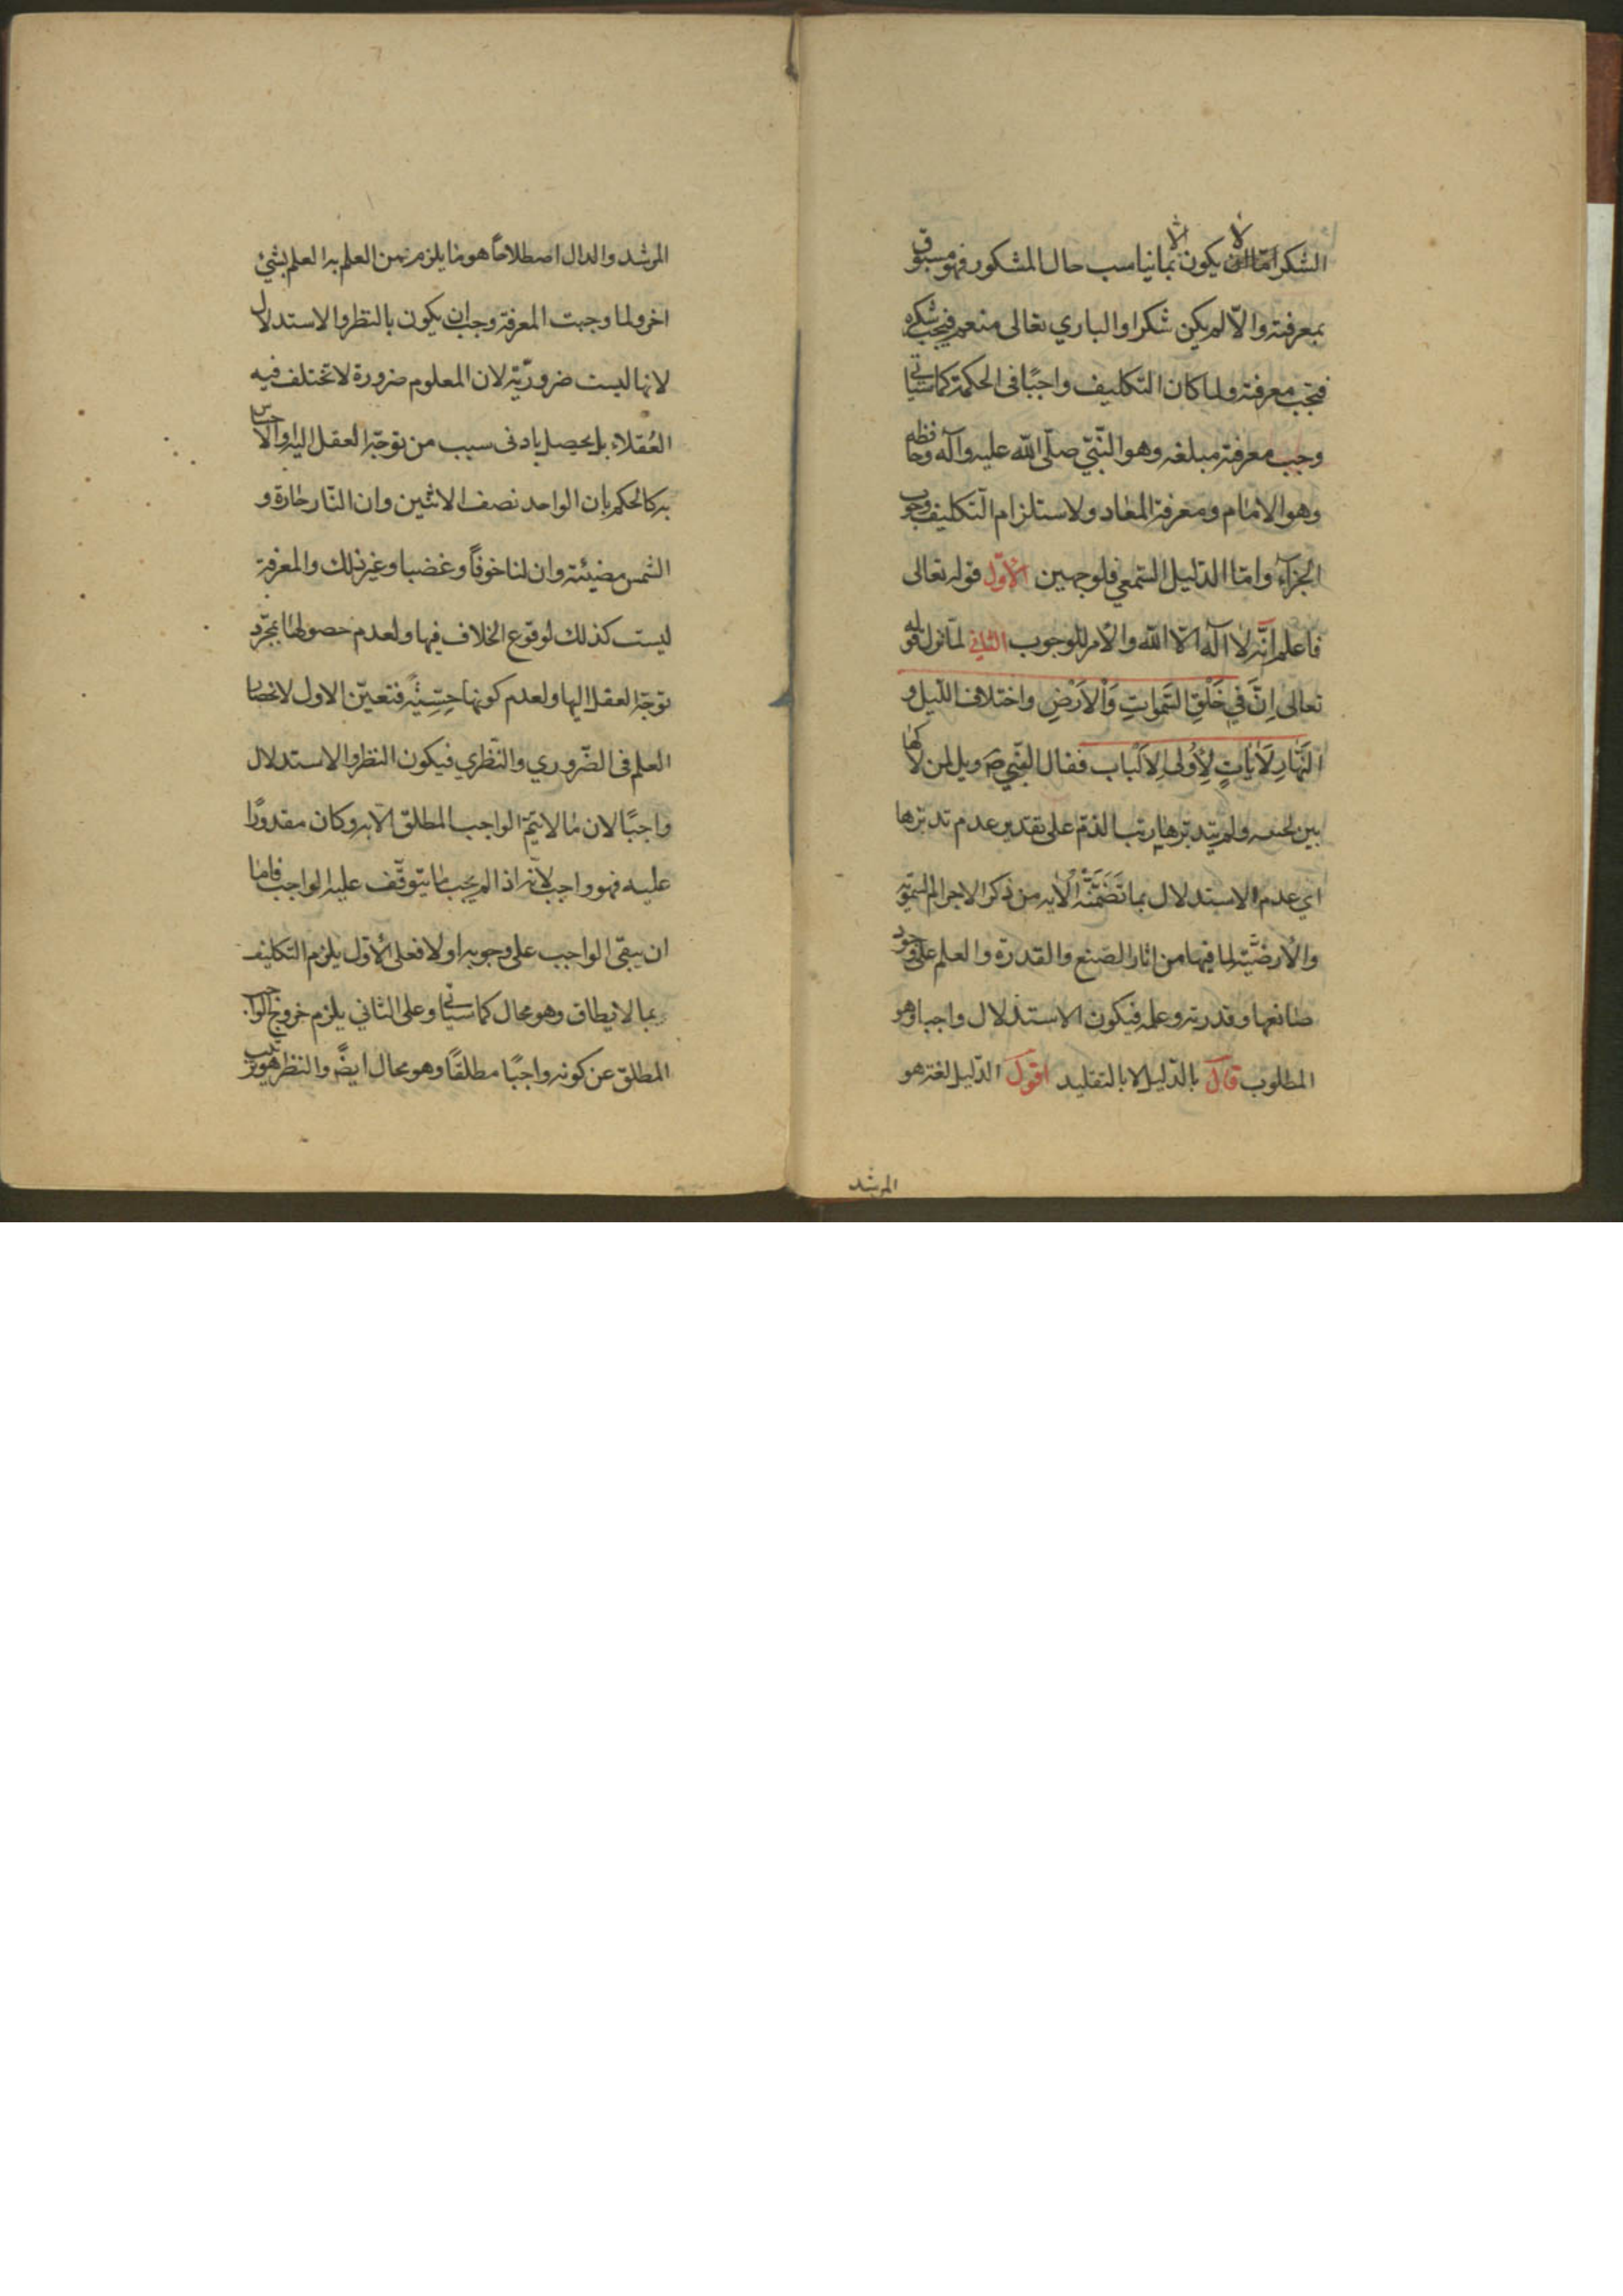 الشكر امّا ان لا يكون الا بما يناسب حال المشكور فهو مسبوق
بمعرفته والّا لم يكن شكرا والباري تعالى منعم فيجب شكره
فتجب معرفته ولما كان التكليف واجبًا فى الحكمة كما سيأتي
وجب معرفة مبلغه وهو النّبيّ صلّى الله عليه وآله وحافظه
وهو الامام ومعرفة المعاد ولاستلزام التّكليف وجوب
الجزآء وامّا الدّليل السّمعي فلوجهين الاوّل قوله تعالى
فاعلم انّه لا اله الّا الله والأمر للوجوب الثاني لمّا نزل قوله
تعالى اِنَّ فِي خَلْقِ السَّمٰوَاتِ وَالْاَرْضِ واختلاف اللّيل و
النَّهَارِ لَاٰيَاتٍ لِاُولِى الْاَلْبَاب فقال النّبيّ ص ويل لمن لاكها
بين لحييه ولم يتدبّرها رتب الذمّ على تقدير عدم تدبّرها
اي عدم الاستدلال بما تَضَمَّنَتْهُ الْآيه من ذكر الاجرام السّمٰويّة
والأرضيّة لما فيها من اثار الصّنع والقدرة والعلم على وجود
صانعها وقدرته وعلمه فيكون الاستدلال واجبا وهو
المطلوب قال بالدّليل لا بالتقليد اقول الدّليل لغة هو
المرشد
المرشد والدال اصطلاحًا هو ما يلزم من العلم به العلم بشئ
اخر ولما وجبت المعرفة وجب ان يكون بالنظر والاستدلال
لانها ليست ضروريّة لان المعلوم ضرورة لا تختلف فيه
العُقلاء بل يحصل بادنى سبب من توجّه العقل اليه والاحساس
به كالحكم بان الواحد نصف الاثنين وان النّار حارة و
الشمس مضيئة وان لنا خوفًا وغضبا وغير ذلك والمعرفة
ليست كذلك لوقوع الخلاف فيها ولعدم حصولها بمجرّد
توجّه العقل اليها ولعدم كونها حِسِّيَّةً فتعيّن الاول لانحصار
العلم فى الضّروري والنّظري فيكون النظر والاستدلال
واجبًا لان ما لا يتمّ الواجب المطلق الا به وكان مقدورًا
عليه فهو واجب لأنّه اذا لم يجب ما يتوقّف عليه الواجب فاما
ان يبقى الواجب على وجوبه او لا فعلى الأوّل يلزم التكليف
بما لا يطاق وهو محال كما سيأتي وعلى الثاني يلزم خروج الواجب
المطلق عن كونه واجبًا مطلقًا وهو محال ايضًا والنظر هو ترتيب